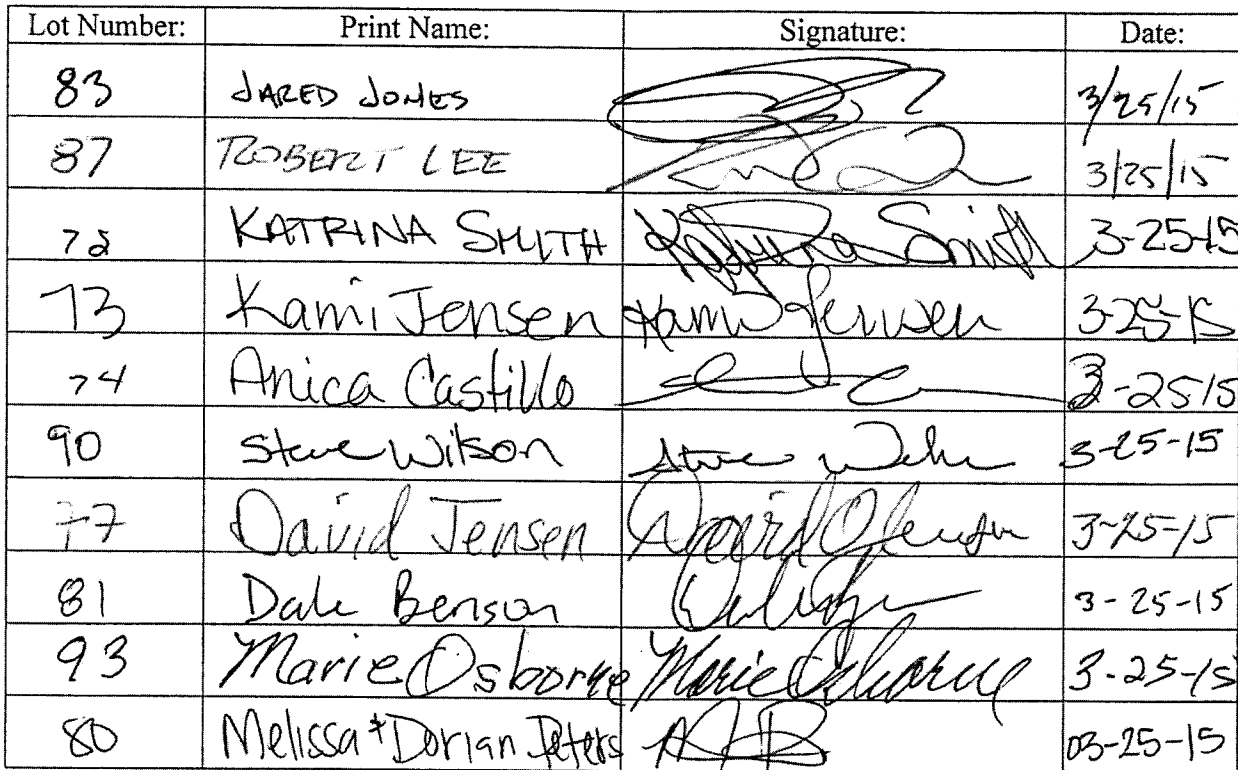 Lot Number: Print Name: Signature: Date:
83 JARED JONES 3/25/15
87 ROBERT LEE 3/25/15
72 KATRINA SMITH Katrina Smith 3-25-15
73 Kami Jensen Kami Jensen 3-25-15
74 Anica Castillo 3-25-15
90 Steve Wilson Steve 3-25-15
77 David Jensen David Jensen 3-25-15
81 Dale Benson 3-25-15
93 Marie Osborne Marie Osborne 3-25-15
80 Melissa + Dorian Peters 03-25-15